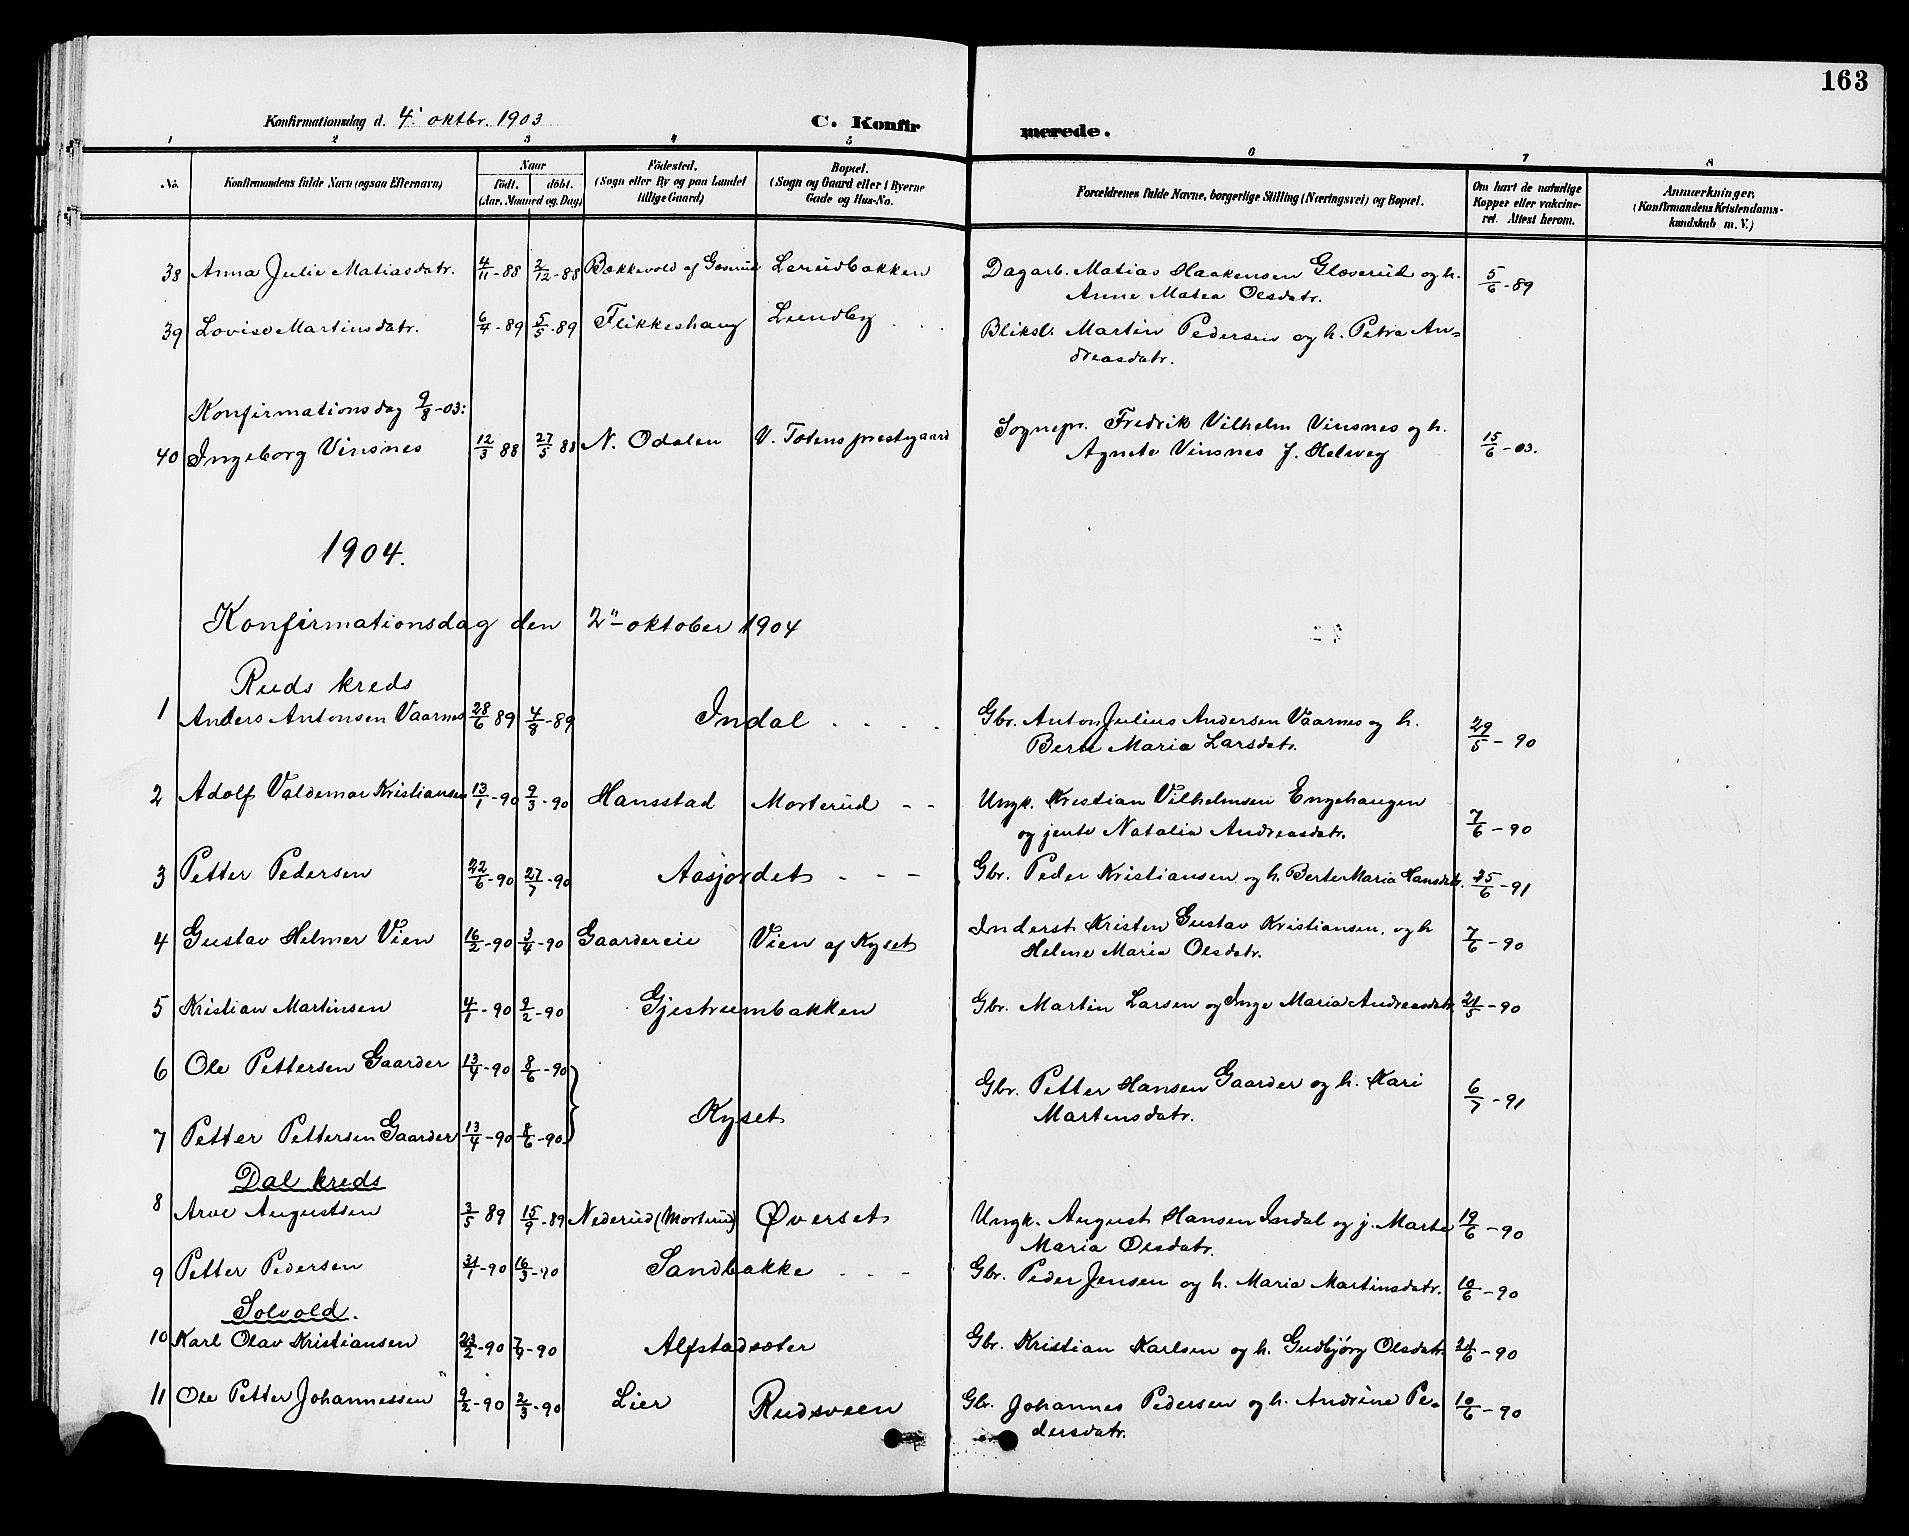 163
Konfirmationsdag d. 4. oktbr. 1903 C. Konfirmerede.
1 2 3 4 5 6 7 8
No. Konfirmandens fulde Navn (ogsaa Efternavn) Naar født. døbt. (Aar, Maaned og Dag) Fødested. (Sogn eller By og paa Landet tillige Gaard) Bopæl. (Sogn og Gaard eller i Byerne Gade og Hus-No. Forældrenes fulde Navne, borgerlige Stilling (Næringsvei) og Bopæl. Om havt de naturlige Kopper eller vakcineret. Attest herom. Anmærkninger, (Konfirmandens Kristendomskundskab m. V.)
38 Anna Julie Matiasdatr. 4/11-88 2/12-88 Bækkevold af Gæserud Lerudbakken Dagarb. Matias Haakensen Glæserud og h. 5/6-89
Anne Matea Olsdatr.
39 Lovise Martinsdatr. 6/4-89 5/5-89 Flikkeshaug Lundby Bliksl. Martin Pedersen og h. Petra An=
dreasdatr.
Konfirmationsdag 9/8-03:
40 Ingeborg Vinsnes 12/3 88 27/5 88 N. Odalen V. Totens prestegaard Sognepr. Fredrik Vilhelm Vinsnes og h. 15/6-03.
Agnete Vinsnes f. Helweg
1904.
Konfirmationsdag den 2" oktober 1904
Ruds kreds
1 Anders Antonsen Vaarnes 28/6 89 4/8-89 Indal Gbr. Anton Julius Andersen Vaarnes og h. 29/5-90
Berte Maria Larsdatr.
2 Adolf Valdemar Kristiansen 13/1-90 9/3-90 Hansstad Morterud Ungk. Kristian Vilhelmsen Engehaugen 7/6-90
og jente Natalia Andreasdatr.
3 Petter Pedersen 22/6-90 27/7-90 Aasjordet Gbr. Peder Kristiansen og h. Berte Maria Hansdtr. 25/6-91
4 Gustav Helmer Vien 16/2-90 3/4-90 Gaardereie Vien af Kyset Inderst Kristen Gustav Kristiansen, og h 7/6-90
Helene Maria Olsdatr.
5 Kristian Martinsen 4/1-90 9/2-90 Gjestrumbakken Gbr. Martin Larsen og Inge Maria Andreasdatr. 21/5-90
6 Ole Pettersen Gaarder 13/4-90 8/6-90 Kyset Gbr. Petter Hansen Gaarder og h. Kari 6/7-91
Martensdatr.
7 Petter Pettersen Gaarder 13/4-90 8/6-90
Dal kreds
8 Arve Augustsen 3/5 89 15/9-89 Nederud (Morterud) Øverset Ungk. August Hansen Indal og j. Marte 19/6-90
Maria Olsdatr.
9 Petter Pedersen 31/1-90 16/3-90 Sandbakke Gbr. Peder Jensen og h. Maria Martinsdatr. 10/6-90
Solvold.
10 Karl Olav Kristiansen 23/2-90 -90 Alfstadsæter Gbr. Kristian Karlsen og h. Gudbjørg Olsdatr. 21/6-90
11 Ole Petter Johannessen 9/2-90 2/3-90 Lier Rudsveen Gbr. Johannes Pedersen og h. Andrine Pe= 10/6-90
dersdatr.